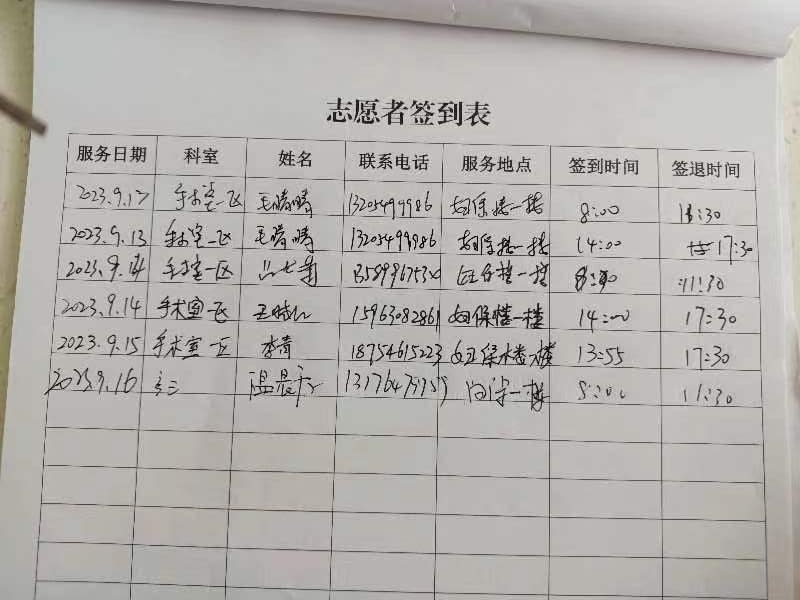 志愿者签到表
服务日期 科室 姓名 联系电话 服务地点 签到时间 签退时间
手术室一区 毛晴晴 13205499986 妇保楼一楼 8:00 11:30
2023.9.13 手术室一区 毛晴晴 13205499986 妇保楼一楼 14:00 17:30
2023.9.14 手术室一区 妇保楼一楼 11:30
2023.9.14 手术室一区 15963082861 妇保楼一楼 14:00 17:30
2023.9.15 手术室一区 李青 18754615223 妇保楼一楼 13:55 17:30
2023.9.16 一楼 8:00 11:30